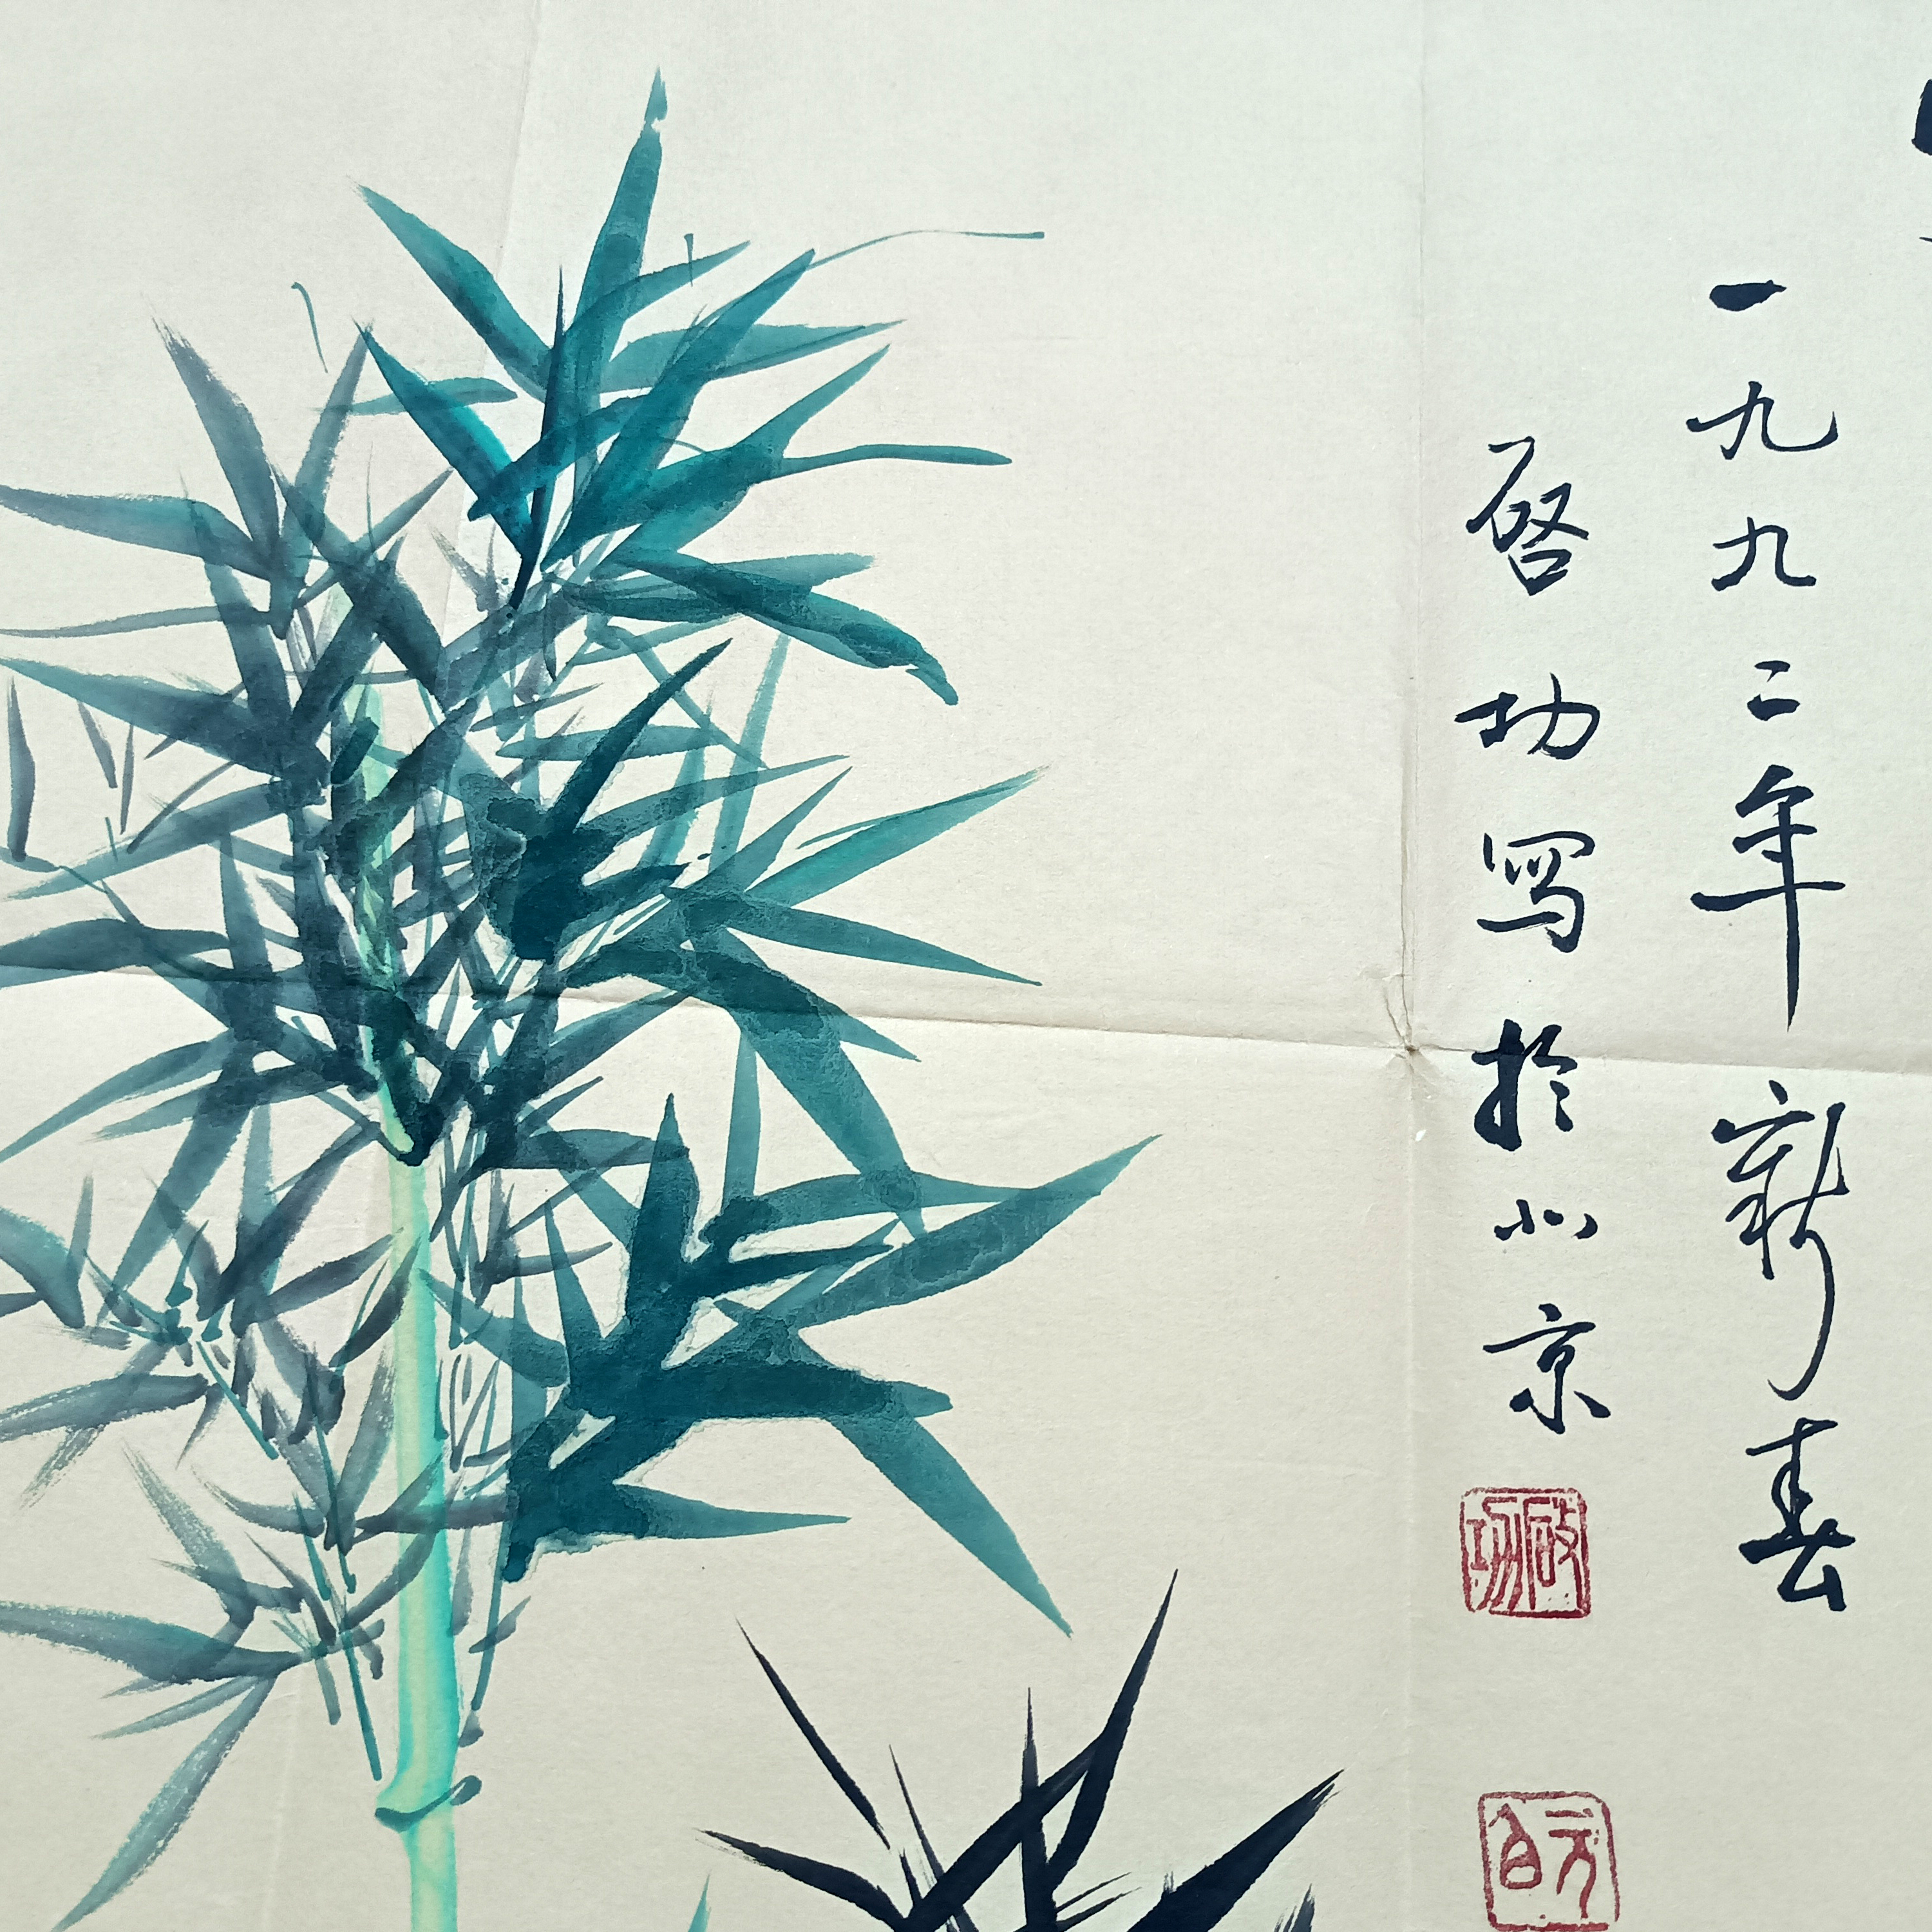 一九九二年新春
启功写于北京
啟功
元白